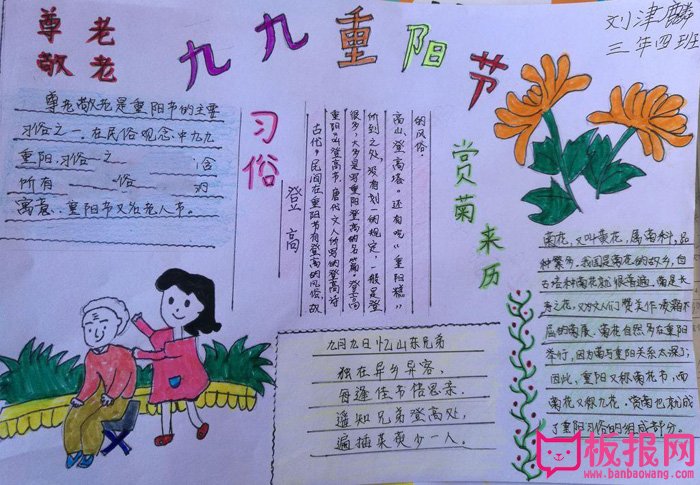 尊老
敬老
九九重阳节
刘津麟
三年四班
尊老敬老是重阳节的主要
习俗之一，在民俗观念中九九
重阳，习俗之 含
所有 俗 的
寓意，重阳节又谷老人节。
习俗
登高
古代，民间在重阳节有登高的风俗，故
重阳又叫登高节。唐代文人所写的登高诗
很多，大多是写重阳登高的名篇。登高
所到之处，没有划一的规定，一般是登
高山、登高塔。还有吃“重阳糕”
的风俗。
赏菊来历
菊花，又叫黄花，属菊科，品
种繁多。我国是菊花的故乡，自
古培种菊花就很普遍。菊是长
寿之花，又为文人们赞美作凌霜不
屈的象展，菊花自然多在重阳
举行，因为菊与重阳关系太深了；
因此，重阳又称菊花节，而
菊花又称九花。赏菊也就成
了重阳习俗的组成部分。
九月九日忆山东兄弟
独在异乡为异客，
每逢佳节倍思亲。
遥知兄弟登高处，
遍插茱萸少一人。
板报网
www.banbaowang.com